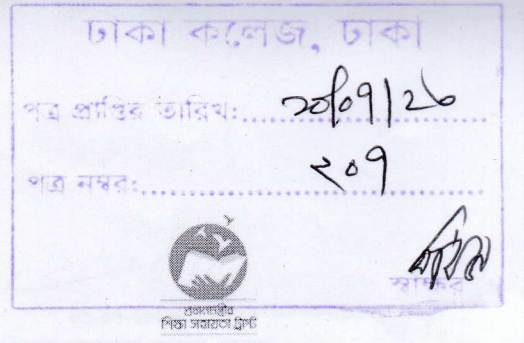 ঢাকা কলেজ, ঢাকা
পত্র প্রাপ্তির তারিখ:
পত্র নম্বর: ২০৭
স্বাক্ষর
প্রধানমন্ত্রীর
শিক্ষা সহায়তা ট্রাস্ট